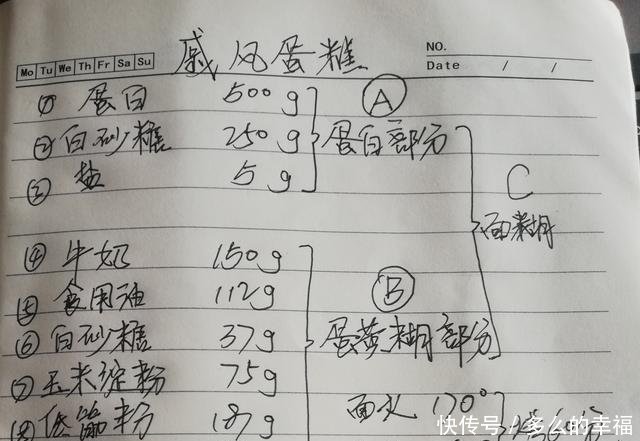 戚风蛋糕
NO.
Mo Tu We Th Fr Sa Su
Date / /
① 蛋白 500g
② 白砂糖 250g
③ 盐 5g
A
蛋白部分
C
面糊
④ 牛奶 150g
⑤ 食用油 112g
⑥ 白砂糖 37g
⑦ 玉米淀粉 75g
⑧ 低筋粉 187g
B
蛋黄糊部分
面火 170°
快传号/多么的幸福